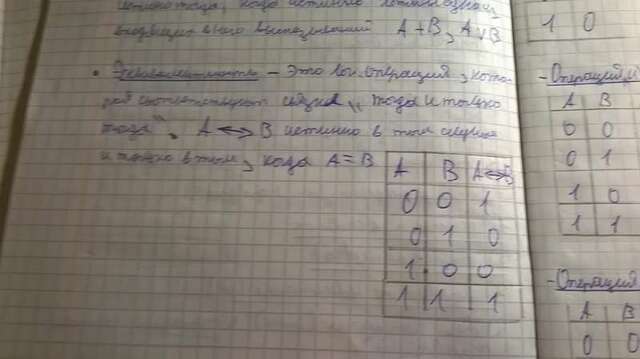 истинно тогда, когда истинно хотя бы одно из
входящих в него высказываний A+B, A∨B
• Эквивалентность – это лог. операция, кото-
рой соответствует связка „тогда и только
тогда". A ↔ B истинно в том случае
и только в том, когда A = B
A B A↔B
0 0 1
0 1 0
1 0 0
1 1 1
1 0
- Операция
A B
0 0
0 1
1 0
1 1
- Операция
A B
0 0